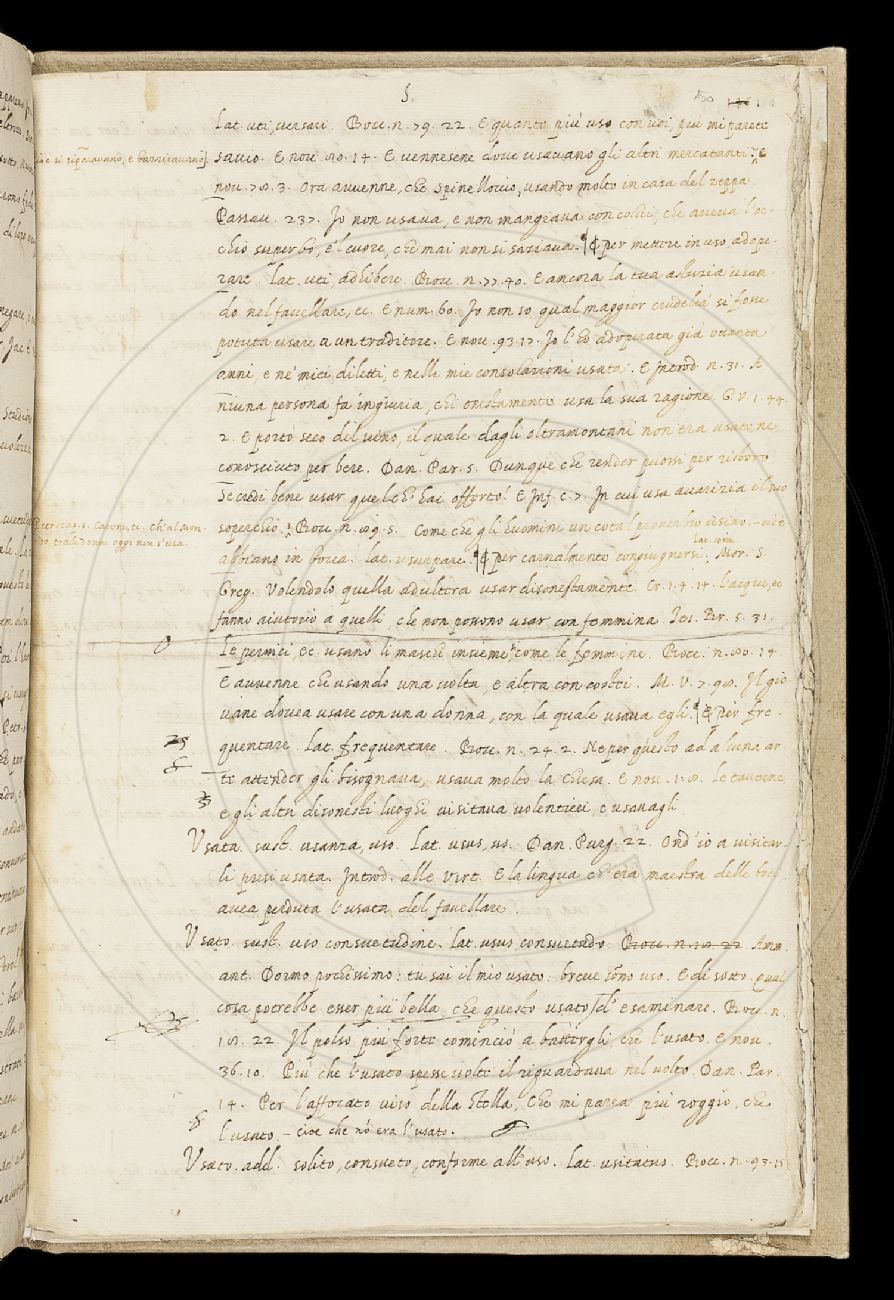 S.
150
Lat. uti, versari. Bocc. n. 79. 22. E quanto piu uso con voi, piu mi parete
savio. E nov. 80. 14. E vennesene dove usavano gli altri mercatanti: E
cioè si riparavano, e barzicavano].
nov. 78. 3. Ora avvenne, che Spinelloccio, usando molto in casa del Zeppa
Passav. 237. Io non usava, e non mangiava con colui, che aveva l'oc-
chio superbo, e'l cuore, che mai non si saziava. ¶ per mettere in uso, adope-
rare. Lat. uti, adhibere. Bocc. n. 77. 40. E ancora la tua astuzia usan-
do nel favellare, ec. E num. 60. Io non so qual maggior crudeltà si fosse
potuta usare a un traditore. E nov. 93. 17. Io l'ho adoperata già ottanta
anni, e ne' miei diletti, e nelle mie consolazioni usata. E Introd. n. 31. A
niuna persona fa ingiuria, chi onestamente usa la sua ragione. G. V. 1. 44.
2. E portò seco del vino, il quale dagli oltramontani non era usato, ne
conosciuto per bere. Dan. Par. 5. Dunque che render puossi per ristoro
Se credi bene usar quel c'hai offerto? E Inf. c. 7. In cui usa avarizia il suo
soperchio. Bocc. n. 89. 5. Come che gli huomini un cotal proverbio usino.
abbiano in bocca. Lat. usurpare. ¶ per carnalmente congiugnersi. Lat. coire. Mor. S.
Greg. Volendolo quella adultera usar disonestamente. Cr. 1. 4. 14. l'acque, ec
fanno aiutorio a quelli, che non possono usar con femmina. Tes. Br. 5. 31.
Le pernici, ec. usano li maschi insieme come le femmine. Bocc. n. 80. 14.
E avvenne che usando una volta, e altra con costei. M. V. 7. 98. Il gio
vane dovea usare con una donna, con la quale usava egli. ¶ E per fre-
quentare. Lat. frequentare. Bocc. n. 24. 2. Ne per questo ad alcuna ar
te attender gli bisognava, usava molto la Chiesa. E nov. 1. 8. le taverne
e gli altri disonesti luoghi visitava volentieri, e usavagli
Usata. sust. usanza, uso. Lat. usus, us. Dan. Purg. 22. Ond'io a visitar-
li presi usata. Introd. alle Virt. E la lingua ch'era maestra delle
avea perduta l'usata del favellare.
Usato. sust. uso consuetudine. Lat. usus consuetudo. Bocc. n. 18. 22. Am.
ant. Dormo pochissimo: tu sai il mio usato: breve sonno uso. E di sotto. Qual
cosa potrebbe esser più bella che questo usato d'esaminare. Bocc. n.
18. 22. Il polso più forte cominciò a battergli, che l'usato. E nov.
36. 10. Più che l'usato spesse volte il riguardava nel volto. Dan. Par.
14. Per l'affocato viso della stella, Che mi parea più roggio, che
l'usato. – cioè che nõ era l'usato.
Usato. add. solito, consueto, conforme all'uso. Lat. usitatus. Bocc. n. 93. 15